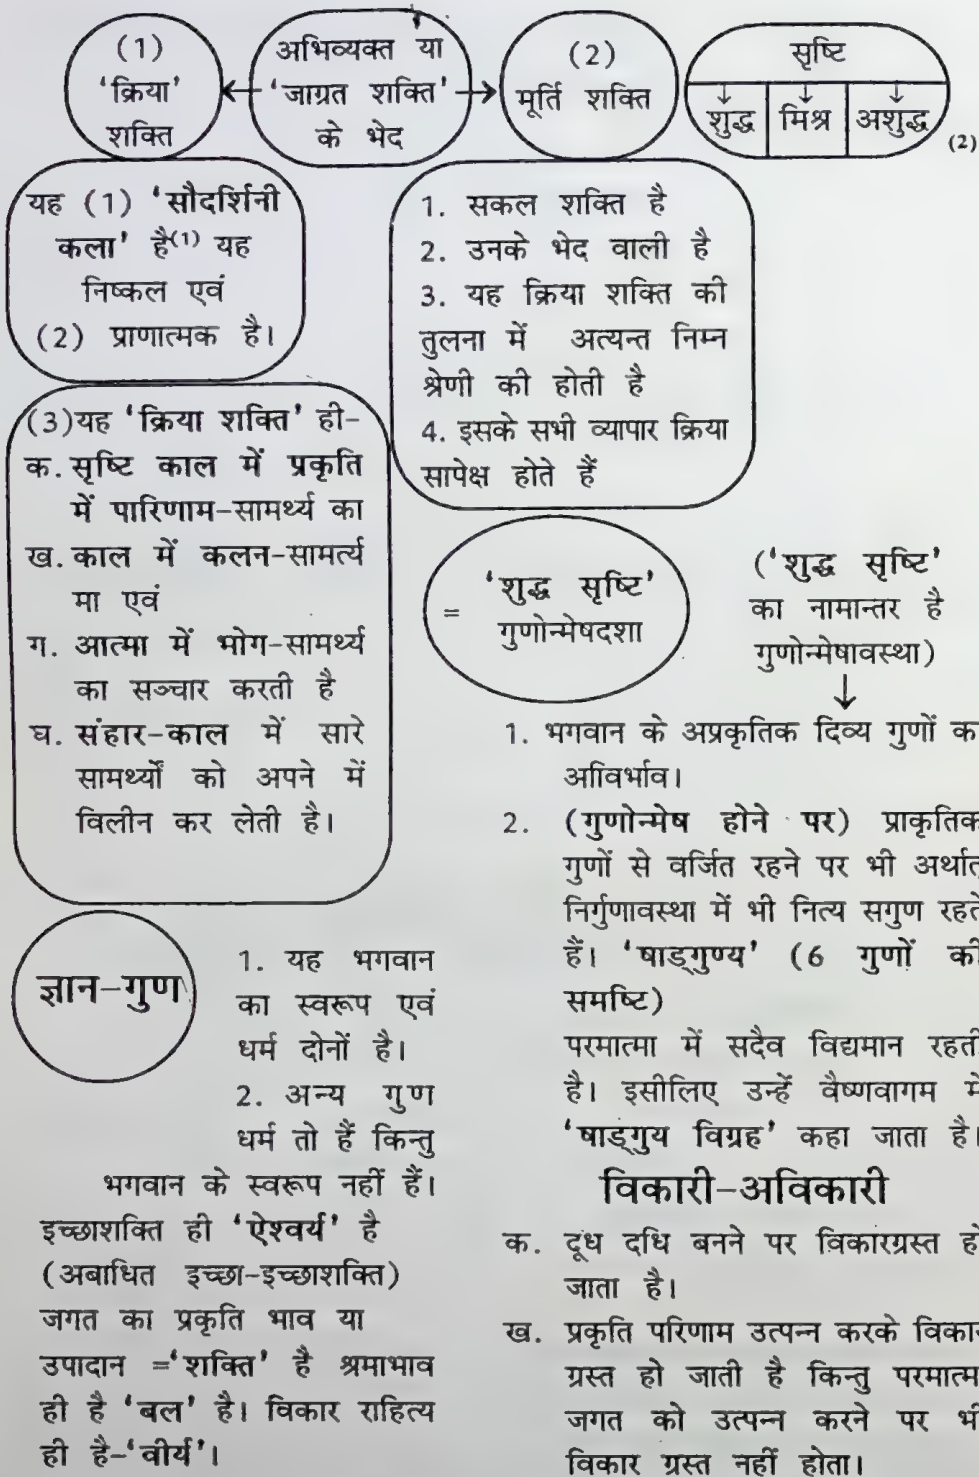 (1)
'क्रिया'
शक्ति
अभिव्यक्त या
'जाग्रत शक्ति'
के भेद
(2)
मूर्ति शक्ति
सृष्टि
शुद्ध मिश्र अशुद्ध (2)
यह (1) 'सौदर्शिनी
कला' है(1) यह
निष्कल एवं
(2) प्राणात्मक है।
1. सकल शक्ति है
2. उनके भेद वाली है
3. यह क्रिया शक्ति की
तुलना में अत्यन्त निम्न
श्रेणी की होती है
4. इसके सभी व्यापार क्रिया
सापेक्ष होते हैं
(3)यह 'क्रिया शक्ति' ही-
क. सृष्टि काल में प्रकृति
में पारिणाम-सामर्थ्य का
ख. काल में कलन-सामर्त्य
मा एवं
ग. आत्मा में भोग-सामर्थ्य
का सञ्चार करती है
घ. संहार-काल में सारे
सामर्थ्यों को अपने में
विलीन कर लेती है।
= 'शुद्ध सृष्टि'
गुणोन्मेषदशा
('शुद्ध सृष्टि'
का नामान्तर है
गुणोन्मेषावस्था)
1. भगवान के अप्रकृतिक दिव्य गुणों क
अाविर्भाव।
2. (गुणोन्मेष होने पर) प्राकृतिक
गुणों से वर्जित रहने पर भी अर्थात्
निर्गुणावस्था में भी नित्य सगुण रहते
हैं। 'षाड्गुण्य' (6 गुणों की
समष्टि)
परमात्मा में सदैव विद्यमान रहती
है। इसीलिए उन्हें वैष्णवागम में
'षाड्गुय विग्रह' कहा जाता है।
ज्ञान-गुण
1. यह भगवान
का स्वरूप एवं
धर्म दोनों है।
2. अन्य गुण
धर्म तो हैं किन्तु
भगवान के स्वरूप नहीं हैं।
इच्छाशक्ति ही 'ऐश्वर्य' है
(अबाधित इच्छा-इच्छाशक्ति)
जगत का प्रकृति भाव या
उपादान ='शक्ति' है श्रमाभाव
ही है 'बल' है। विकार राहित्य
ही है-'वीर्य'।
विकारी-अविकारी
क. दूध दधि बनने पर विकारग्रस्त हो
जाता है।
ख. प्रकृति परिणाम उत्पन्न करके विकार
ग्रस्त हो जाती है किन्तु परमात्म
जगत को उत्पन्न करने पर भी
विकार ग्रस्त नहीं होता।